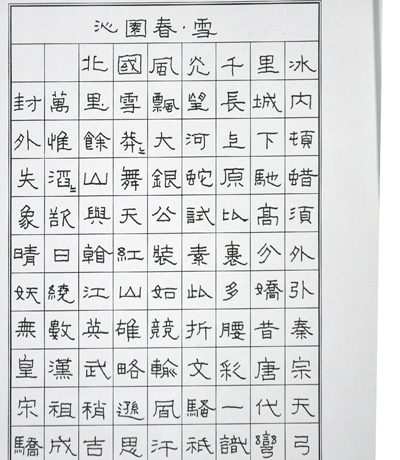 沁園春·雪
北國風光千里冰
封萬里雪飄望長城內
外惟餘莽〻大河上下頓
失滔〻山舞銀蛇原馳蜡
象欲與天公試比高須
晴日看紅裝素裹分外
妖繞江山如此多嬌引
無數英雄競折腰昔秦
皇漢武略輸文彩唐宗
宋祖稍遜風騷一代天
驕成吉思汗祗識彎弓